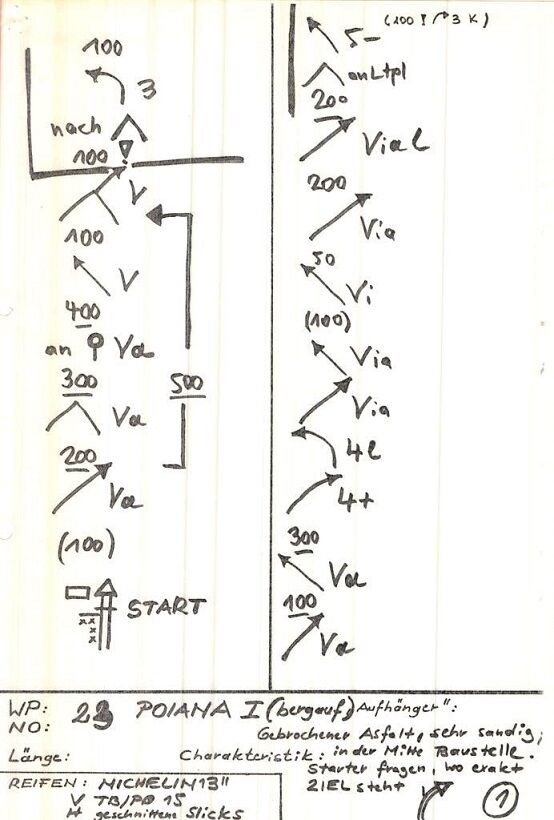 100
3
nach
100
V
100
V
400
an Va
300
Va
500
200
Va
(100)
START
(100 ! 3 K)
5-
an Ltpl
200
Vial
200
Via
50
Vi
(100)
Via
Via
4l
4+
300
Va
100
Va
WP: POIANA I (bergauf) Aufhänger":
NO:
Gebrochener Asfalt, sehr sandig,
Länge: Charakteristik: in der Mitte Baustelle.
Starter fragen, wo exakt
ZIEL steht
REIFEN: MICHELIN 13"
V TB/PD 15
H geschnittene Slicks
1